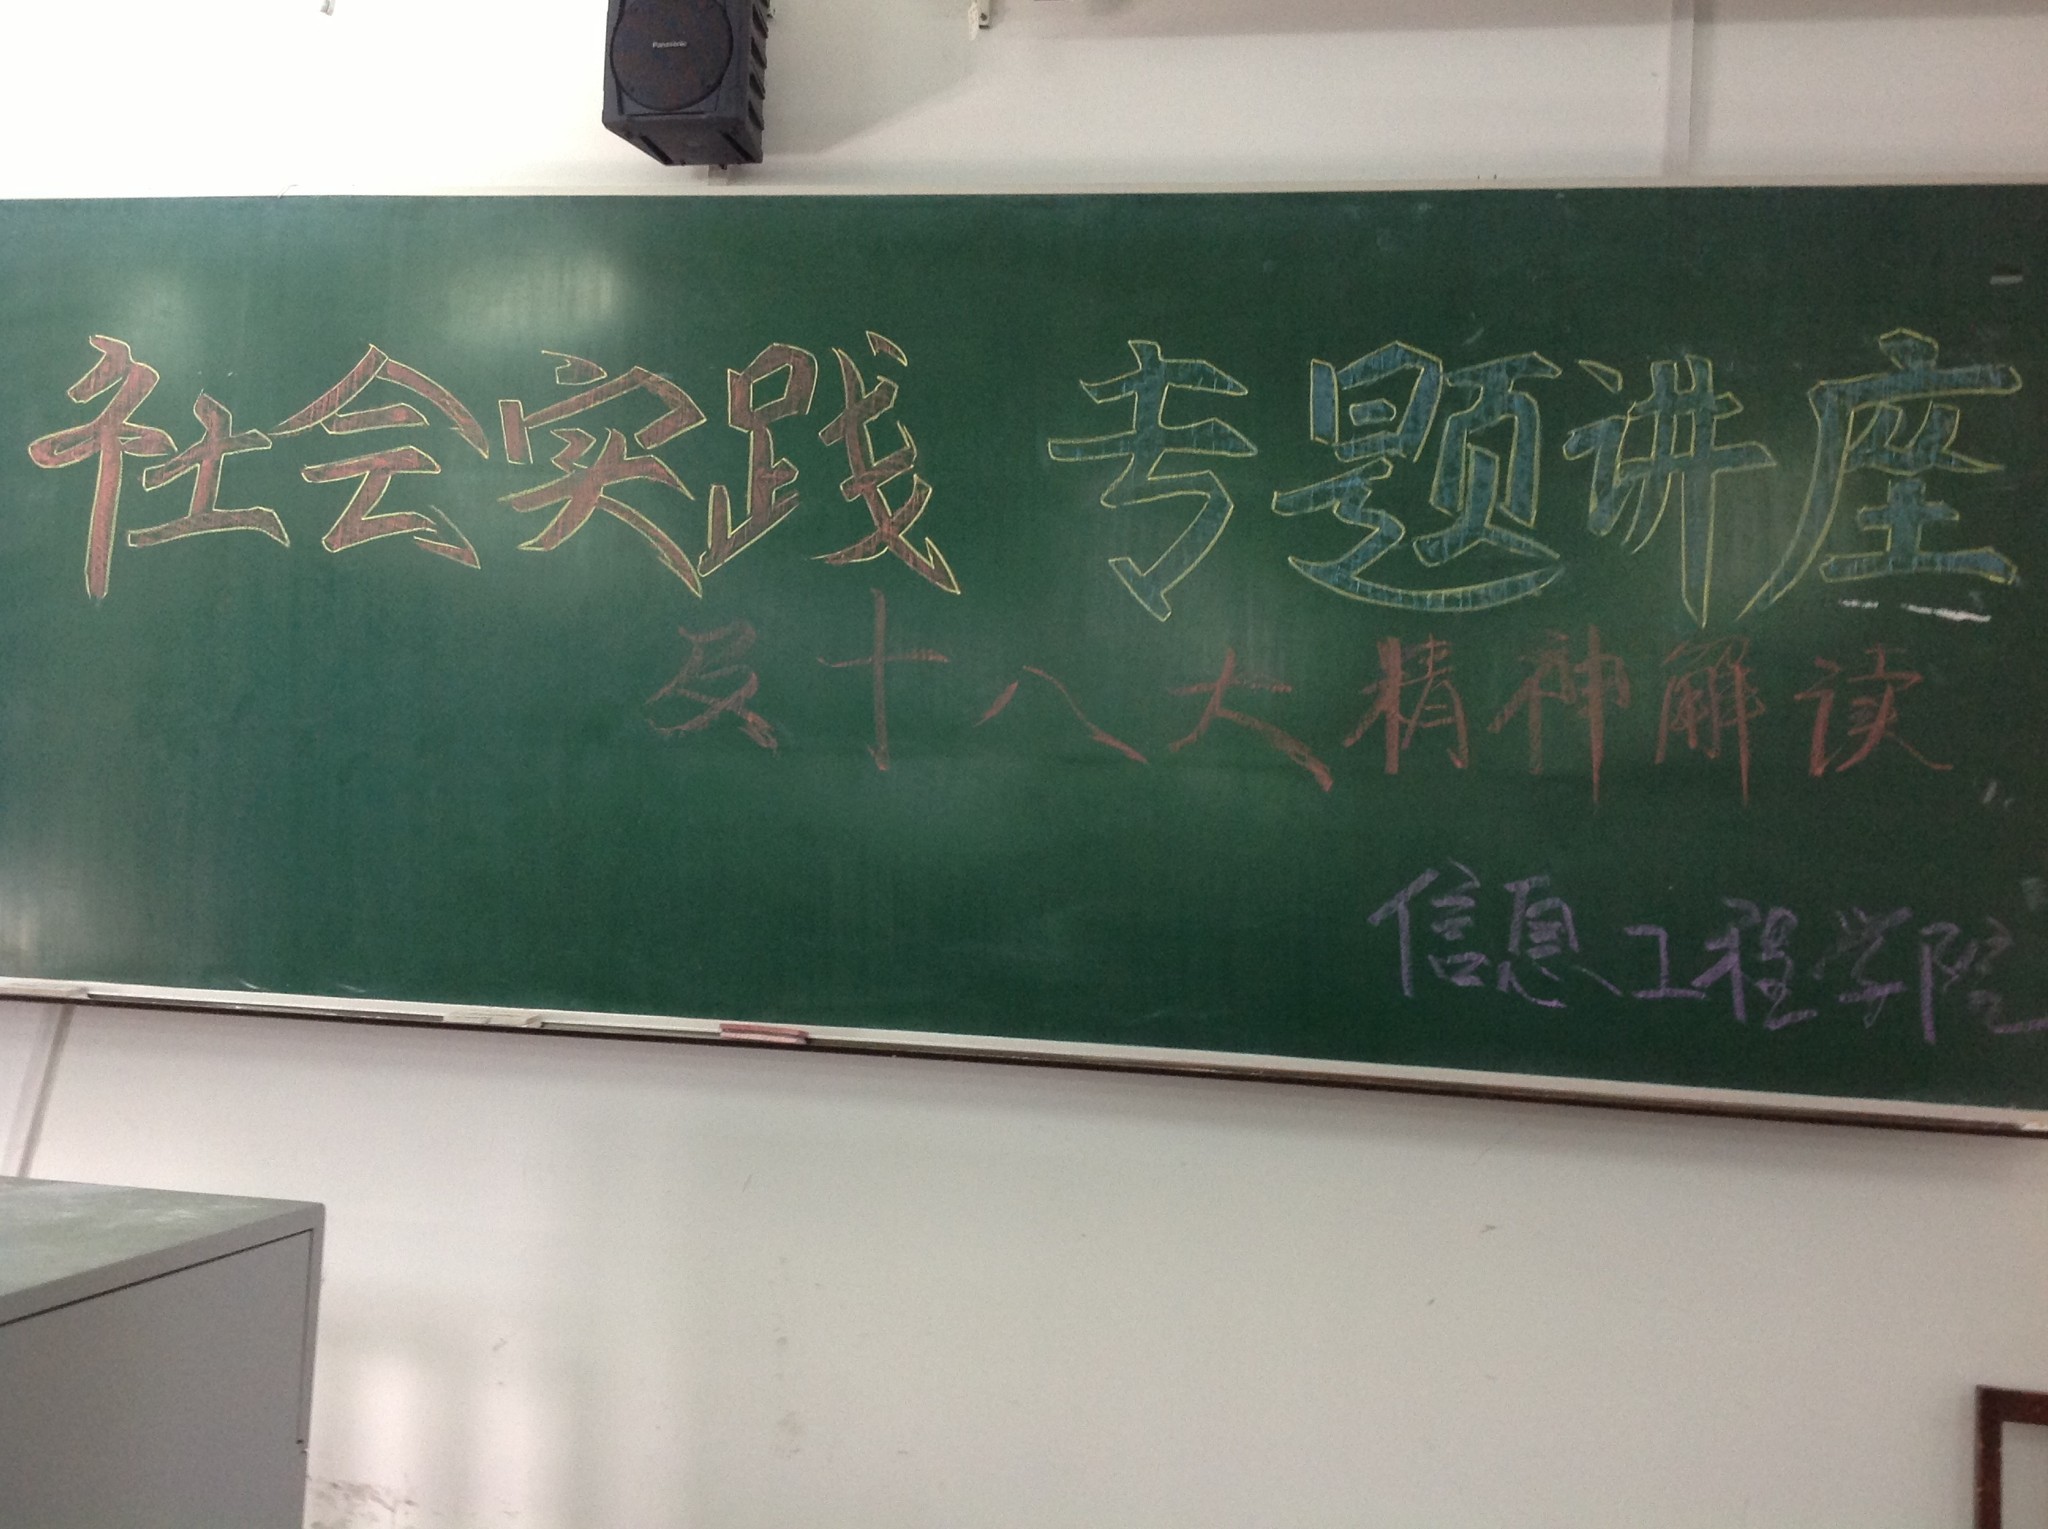 Panasonic
社会实践 专题讲座
及十八大精神解读
信息工程学院